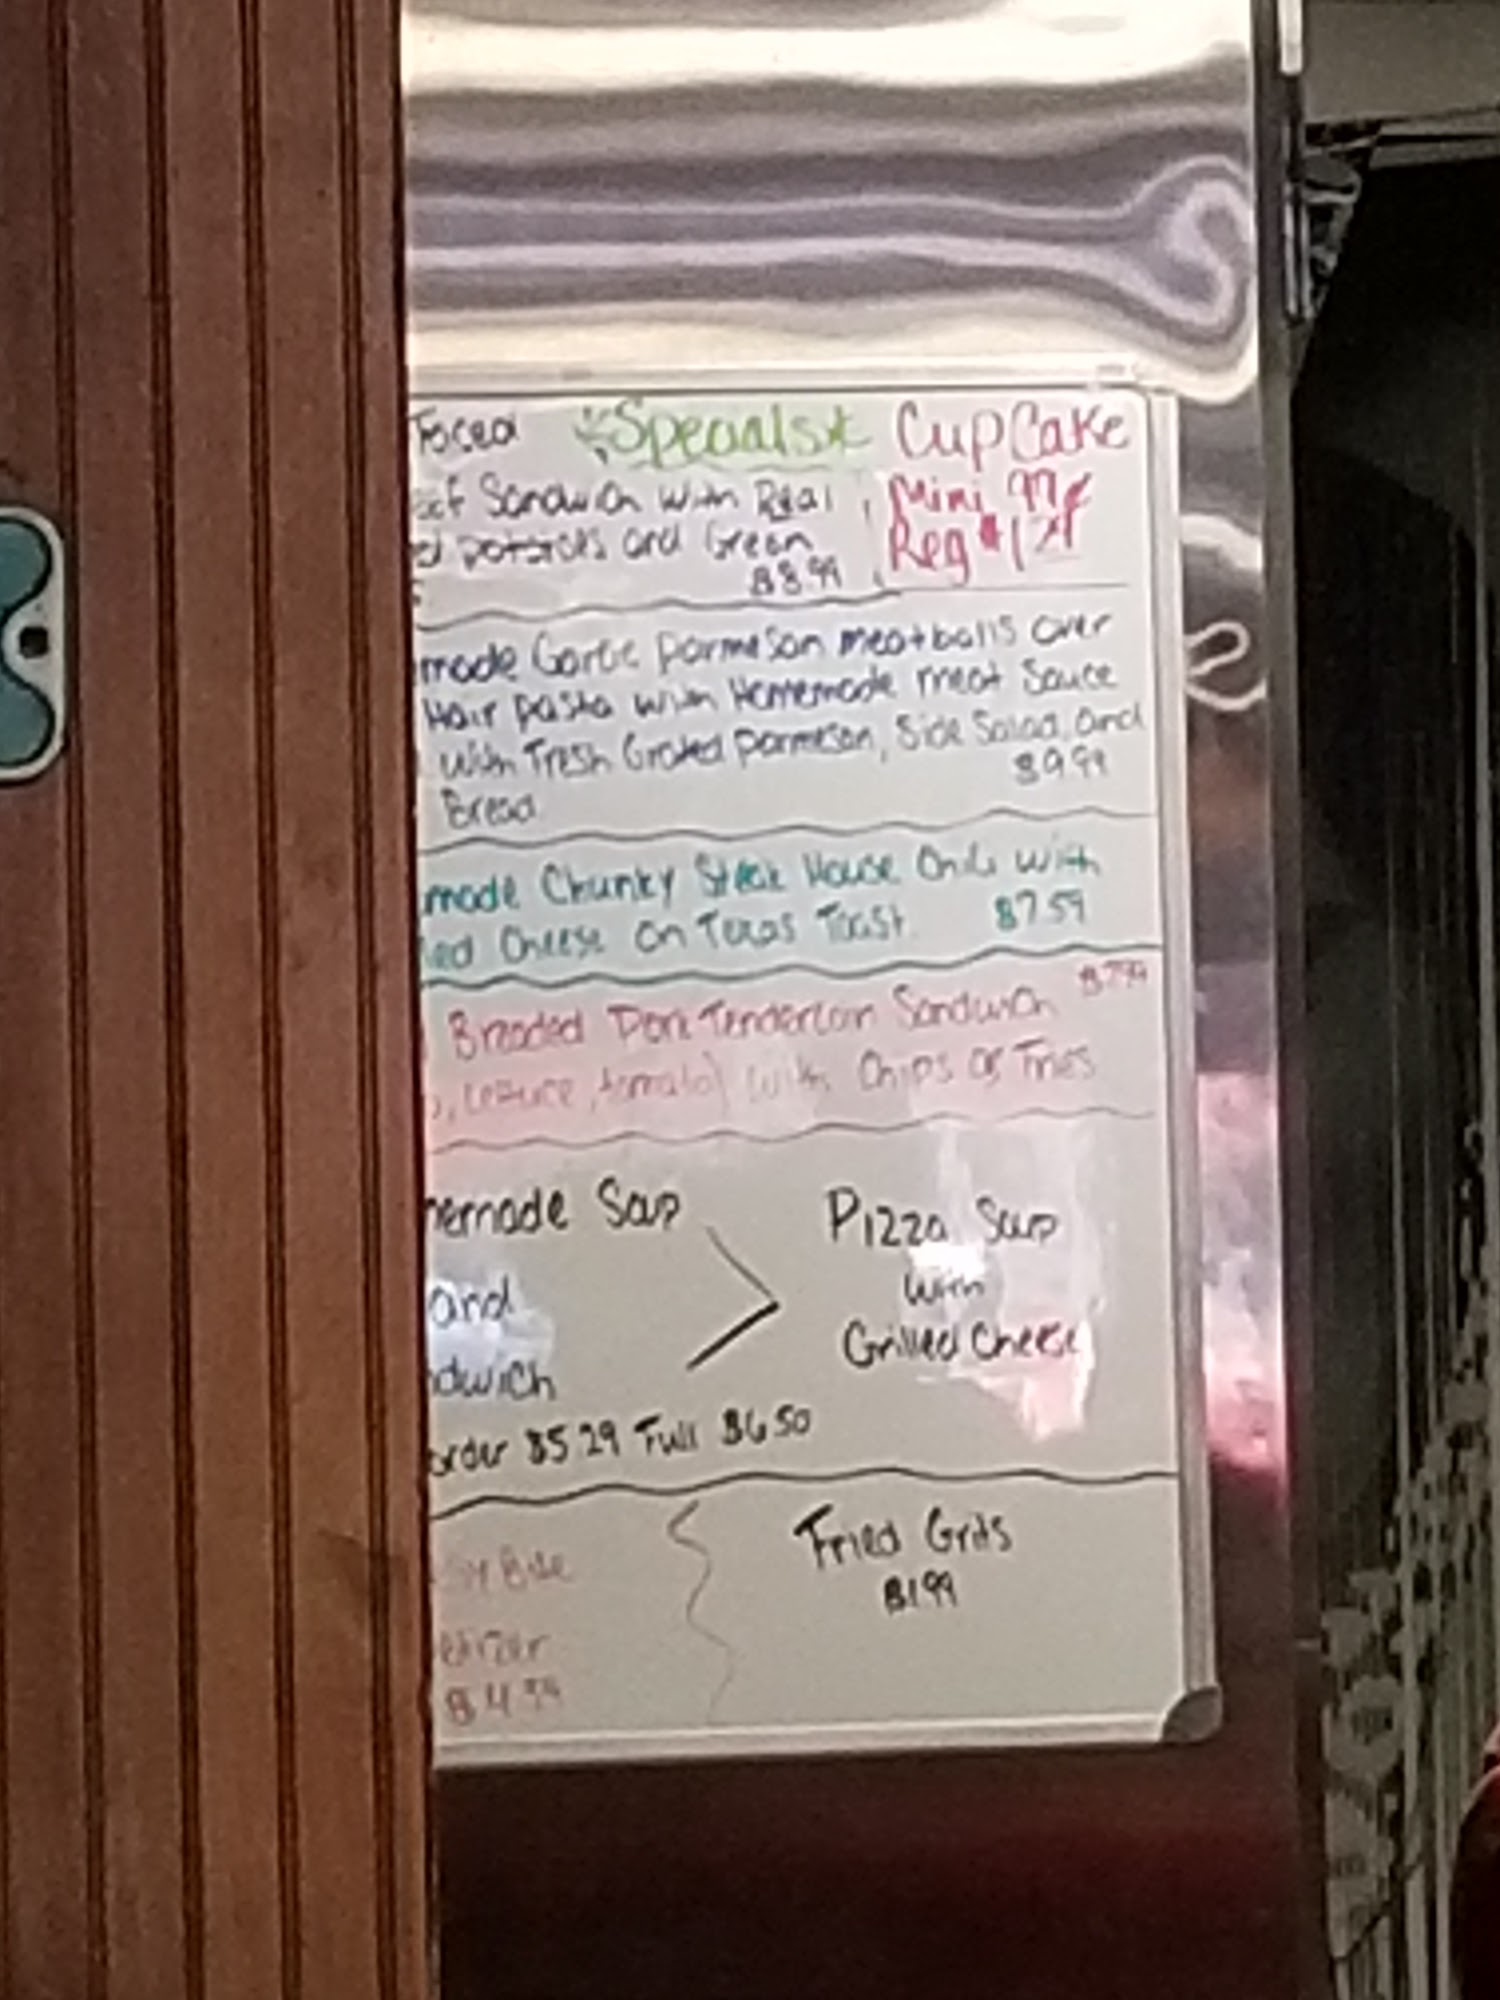 Faced
*Specials*
CupCake
Sandwich with Real
Mini 99¢
potatoes and Green
Reg $1
$8.99
made Garlic parmesan meatballs over
Hair pasta with Homemade meat Sauce
with Fresh Grated parmesan, Side Salad, and
Bread
$9.99
made Chunky Steak House Chili with
Cheese on Texas Toast
$7.59
Breaded Pork Tenderloin Sandwich $7.99
, Lettuce, tomato) with Chips or Fries
Soup
and
Pizza Soup
with
Grilled Cheese
order $5.29 Full $6.50
Fried Grits
$1.99